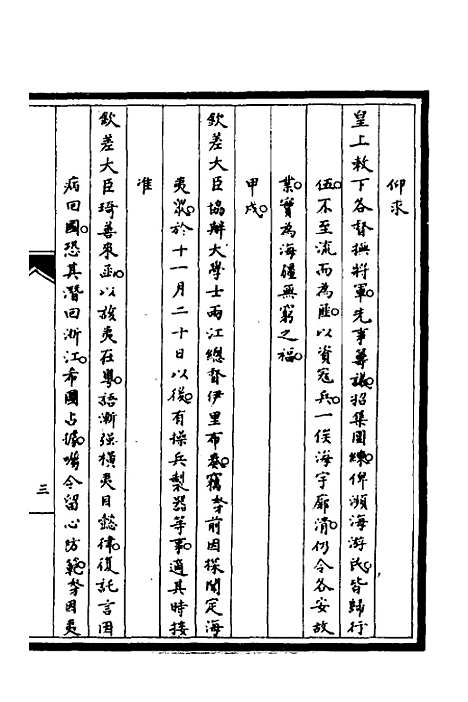 仰求
皇上敕下各督撫將軍。先事籌議。招集團練。俾瀕海游民。皆歸行
伍。不至流而為匪。以資寇兵。一俟海宇廓清。仍令各安故
業。實為海疆無窮之福。
甲戌。
欽差大臣協辦大學士兩江總督伊里布奏。竊奴才前因探聞定海
夷眾。於十一月二十日以後。有操兵製器等事。適其時接
准
欽差大臣琦善來函。以該夷在粵。語漸強橫。夷目懿律。復託言因
病回國。恐其潛回浙江。希圖占據。囑令留心防範。奴才因夷
三